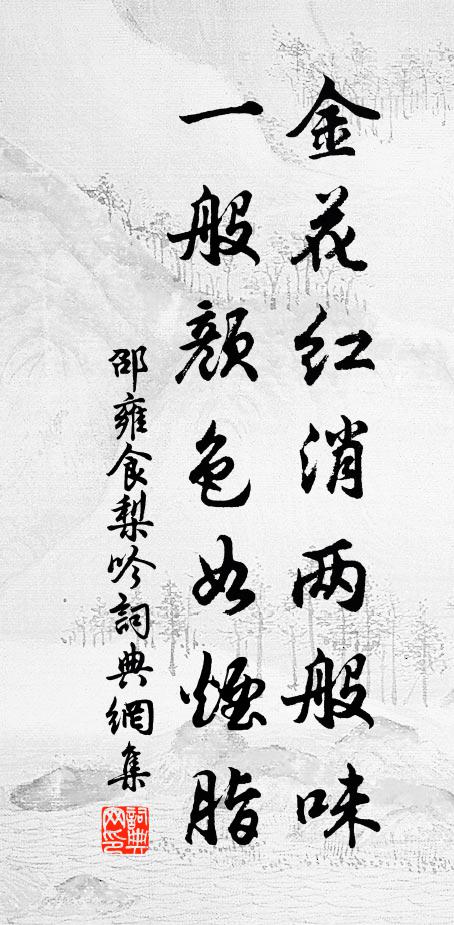 金花红消两般味
一般颜色如煙脂
邵雍食梨吟詞典網集
詞典网印